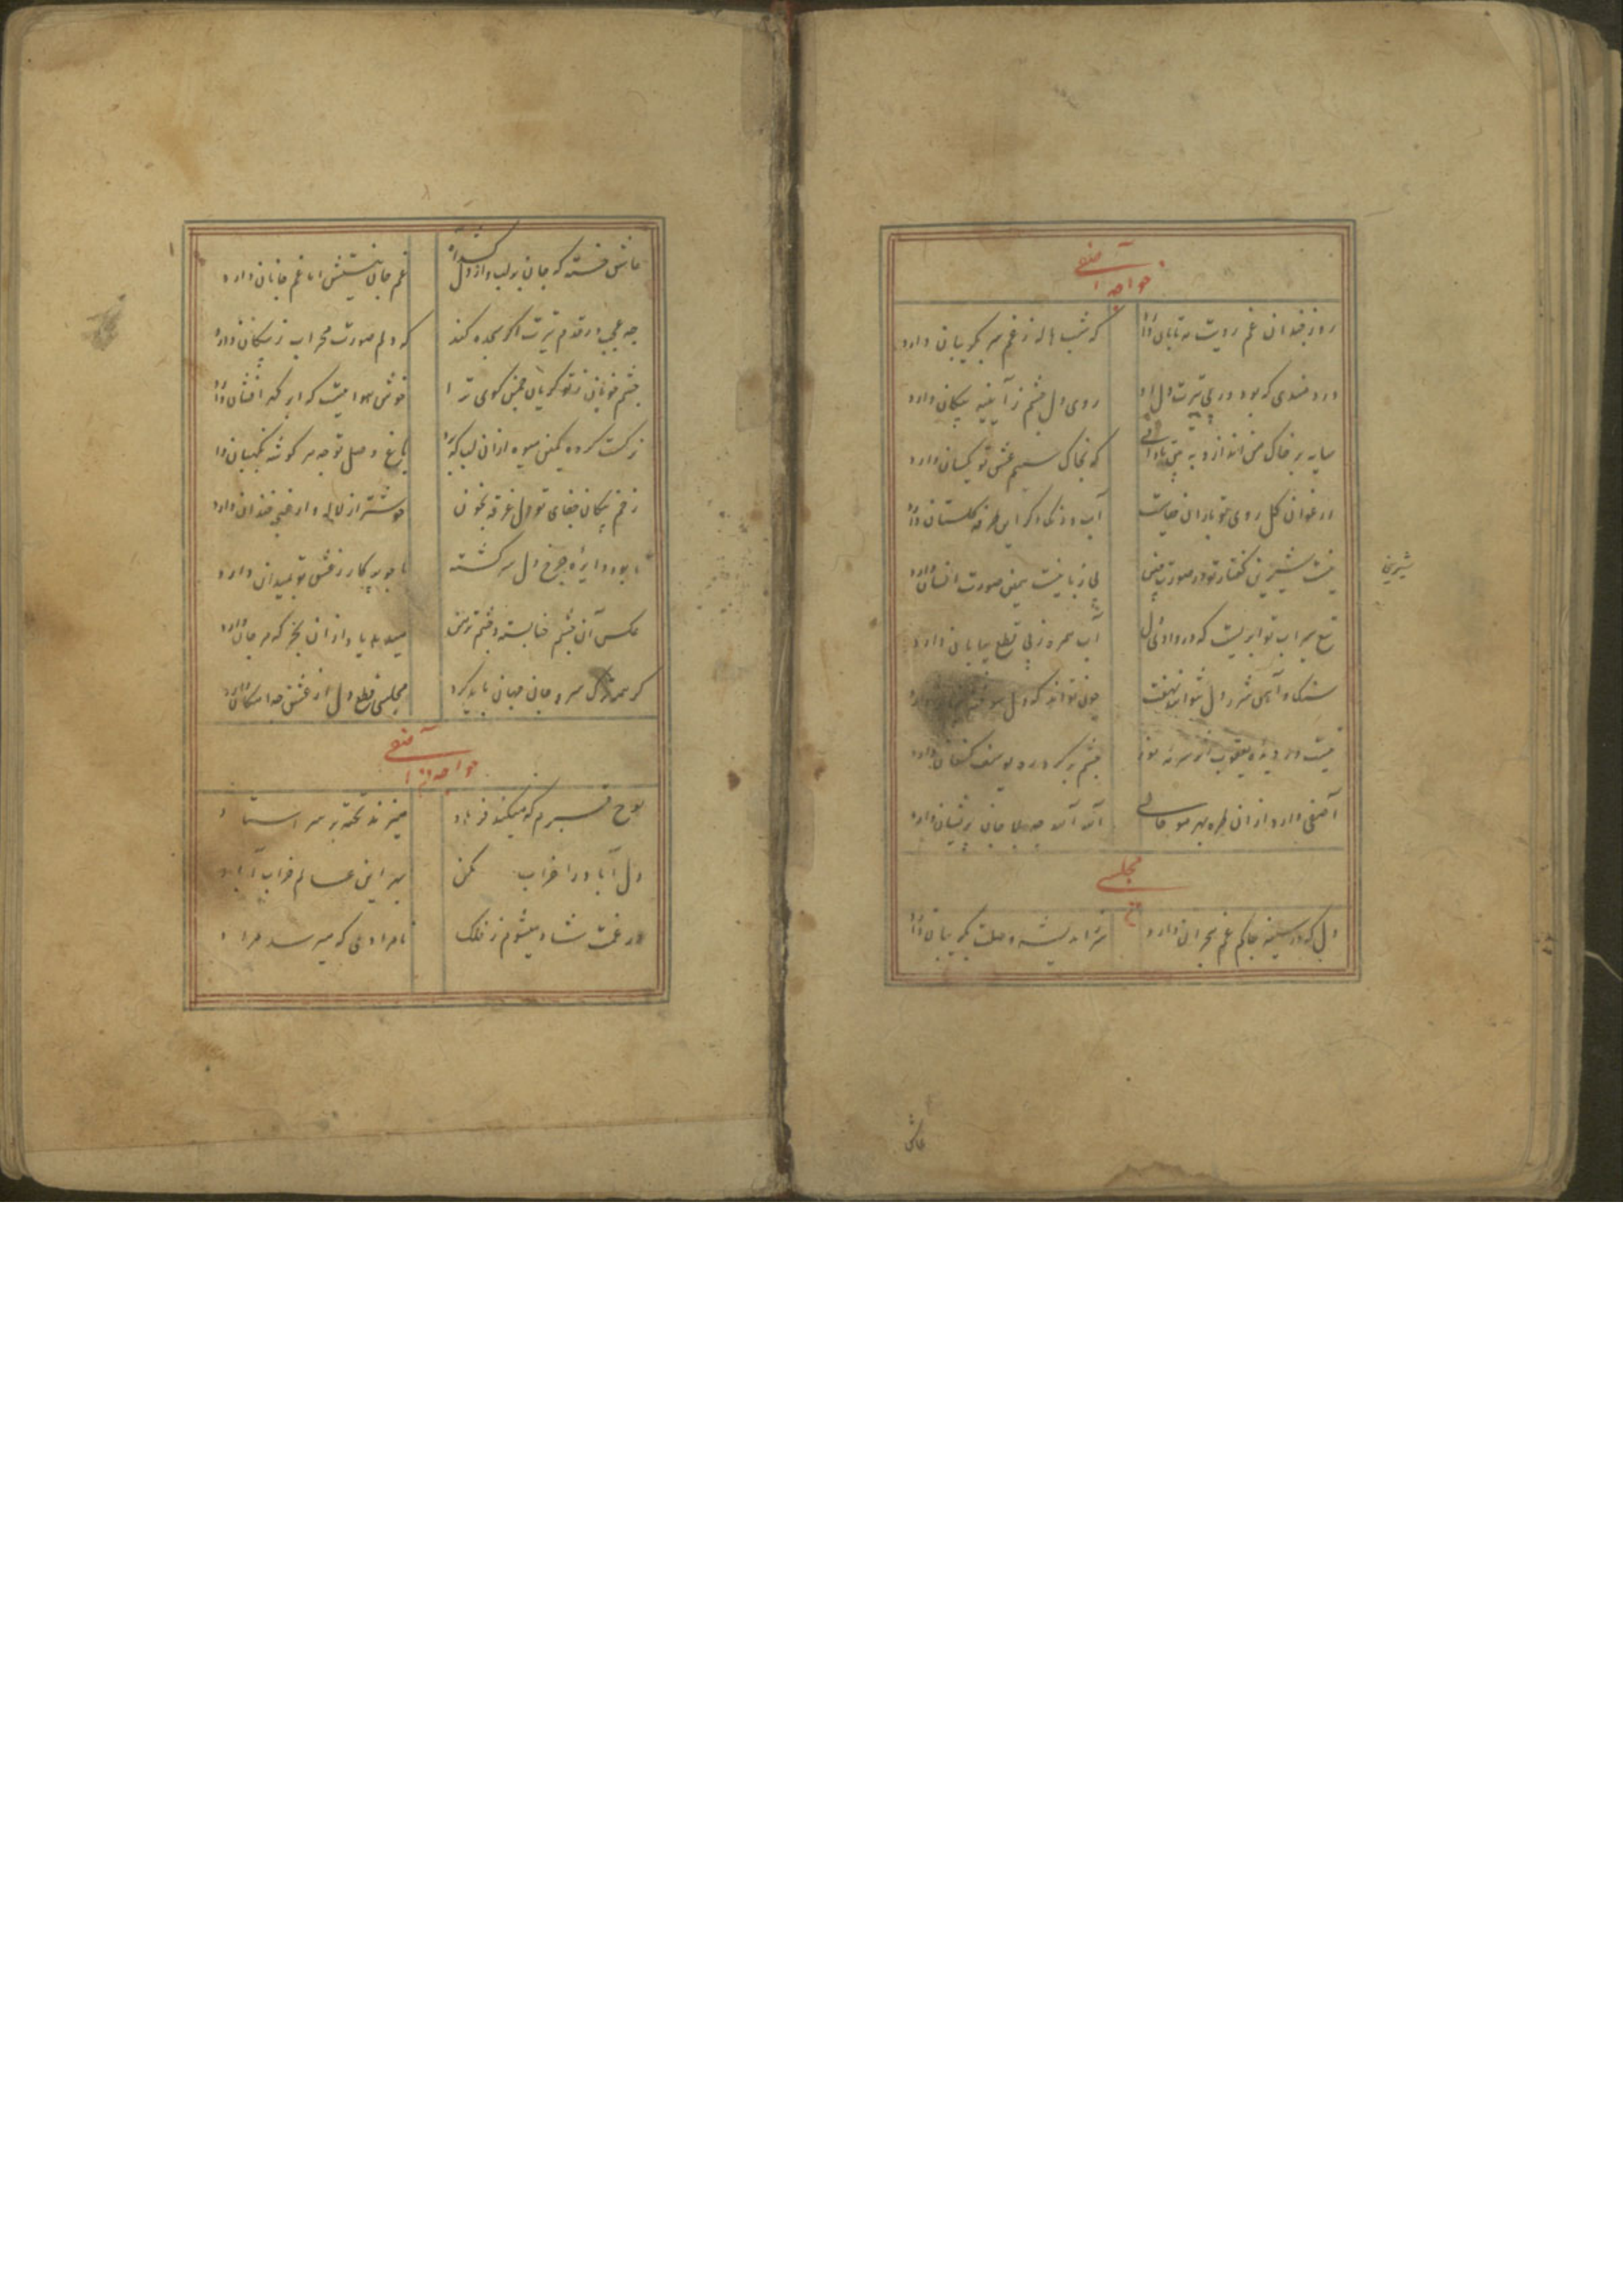 خواجه آصفی
روز چندان غم رویت مه تابان دارد
که شب هاله ز غم سر بگریبان دارد
دردمندی که بود در پی تیرت دل او
روی دل چشم ز آیینه پیکان دارد
سایه بر خاک من انداز
که بخاک سیهم عشق تو یکسان دارد
ارغوان گل روی تو بدان
آب و رنگ دگر این طرفه گلستان دارد
نیست شیرینی گفتار تو در صورت چین
بی زبانیست همین صورت انسان دارد
شیرینی
تیغ سیراب تو ابریست که در وادی دل
آب سر روز پی قطع بیابان دارد
سنگ و آهن شرر دل نتواند نهفت
چون تواند که دل سوخته
نیست در دیده یعقوب اثر سرمه هنوز
چشم بر گرد ره یوسف کنعان دارد
آصفی دارد از آن طره بهر مو
آه آه چه بلا جان پریشان دارد
مجلسی
دل که در سینه چاکم غم هجران دارد
سر اندیشه وصلت بگریبان دارد
عاشق
عاشق خسته که جان بر لب و از دل
غم جان نیستش اما غم جانان دارد
چه عجب در قدم تیرت اگر سجده کند
که دلم صورت محراب ز پیکان دارد
چشم خونابه گریان چمن کوی ترا
خوش هواییست که ابر گهر افشان دارد
نرگست کرده کمین میوه از آن لب که
باغ وصل تو چه هر گوشه نگهبان دارد
زخم پیکان جفای تو دل غرقه بخون
خوشتر از لاله و از غنچه خندان دارد
تا بود دایره چرخ دل سرگشته
پا چو پرگار ز عشق تو بمیدان دارد
عکس آن چشم خنابسته و چشم تر من
میدهد یاد از آن بحر که مرجان دارد
گر همه ترک سر و جان جهان باید کرد
مجلسی قطع دل از عشق چه امکان دارد
خواجه آصفی
لوح قبرم که میکند فرهاد
میزند تخته بر سر استاد
دل آباد را خراب مکن
بهر این عالم خراب آباد
در غمت شاد میشوم ز فلک
نامرادی که میرسد مراد